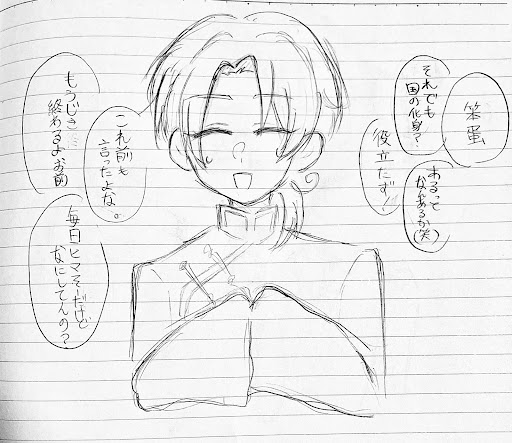 笨蛋
それでも
国の化身？
あるって
なあるか(笑)
役立たず！
これ前も
言ったよな。
もうじき…
終わるよお前
毎日ヒマそーだけど
なにしてんの？